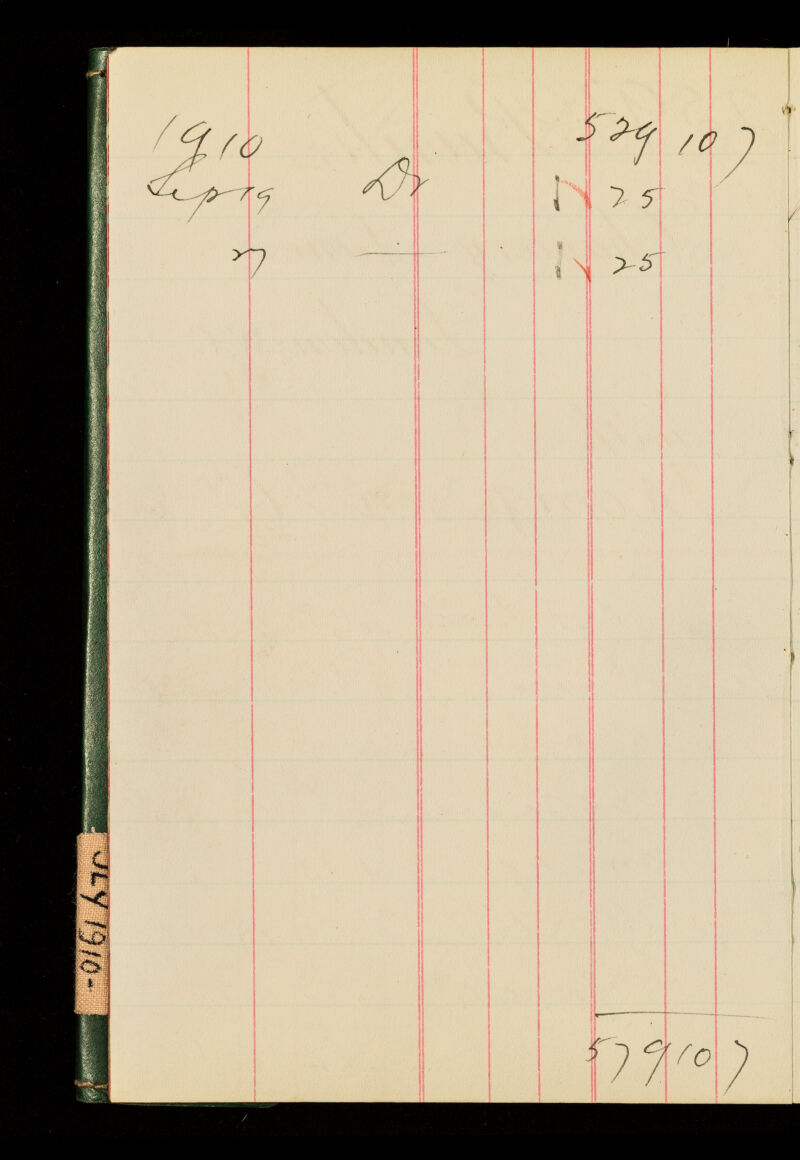 1910 529 10 7
Sep 19 Dr 25
27 — 25
579 10 7
JLY 1910-